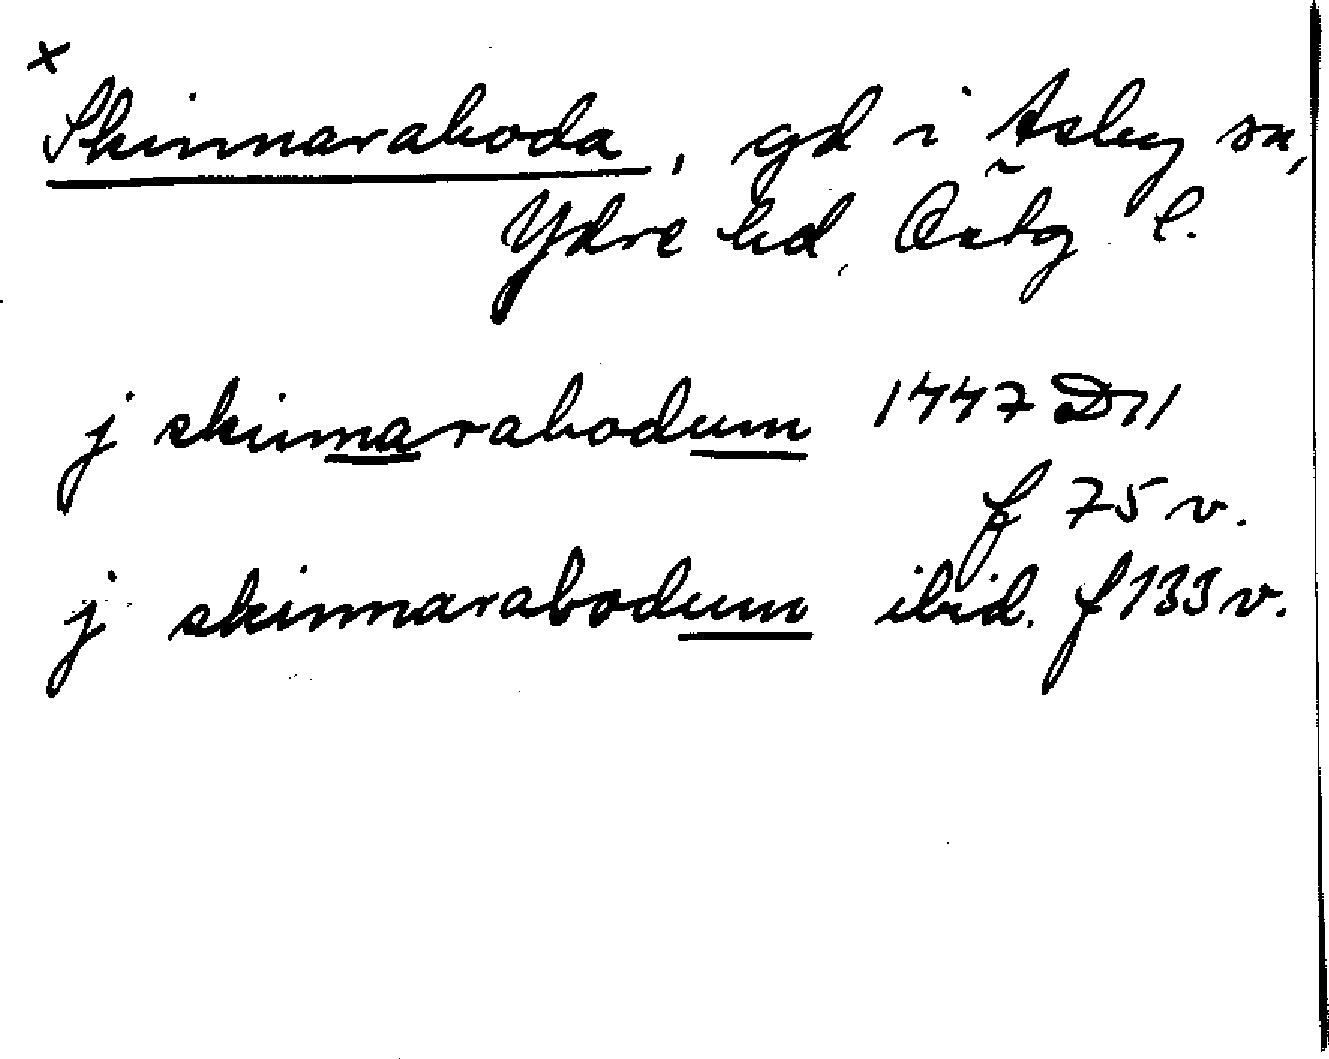 x
Skinnaraboda, gd i Asby sn,
Ydre hd, Östg l.
j skinnarabodum 1447 D11
f 75 v.
j skinnarabodum ibid. f 133 v.